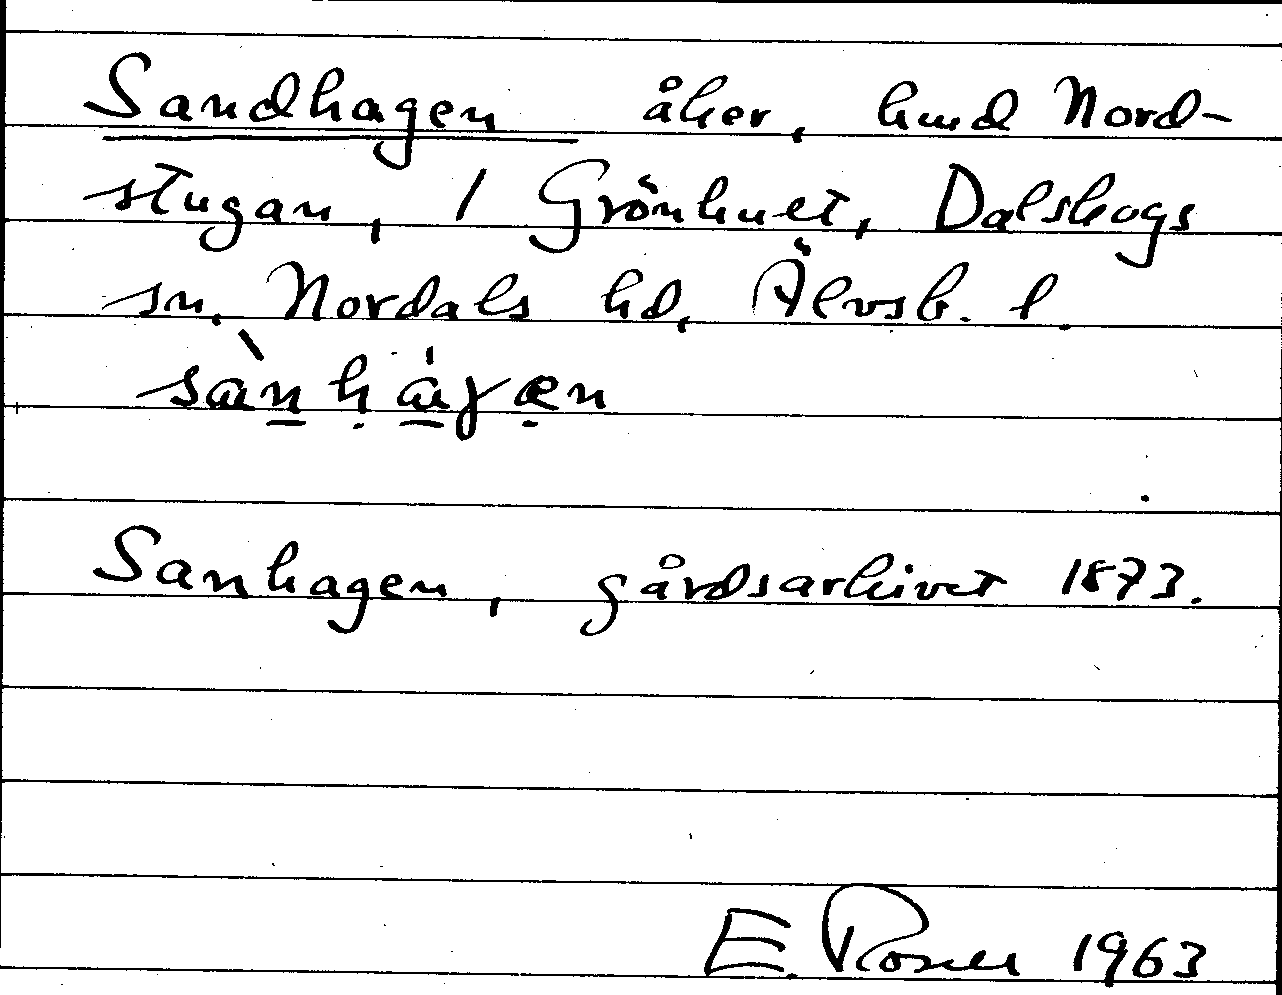 Sandhagen åker, hmd Nord-
stugan, 1 Grönhult, Dalskogs
sn, Nordals hd, Älvsb. l.
sàn̲ḥá̲ɣæ̣n
Sanhagen, gårdsarkivet 1873.
E. Rosell 1963